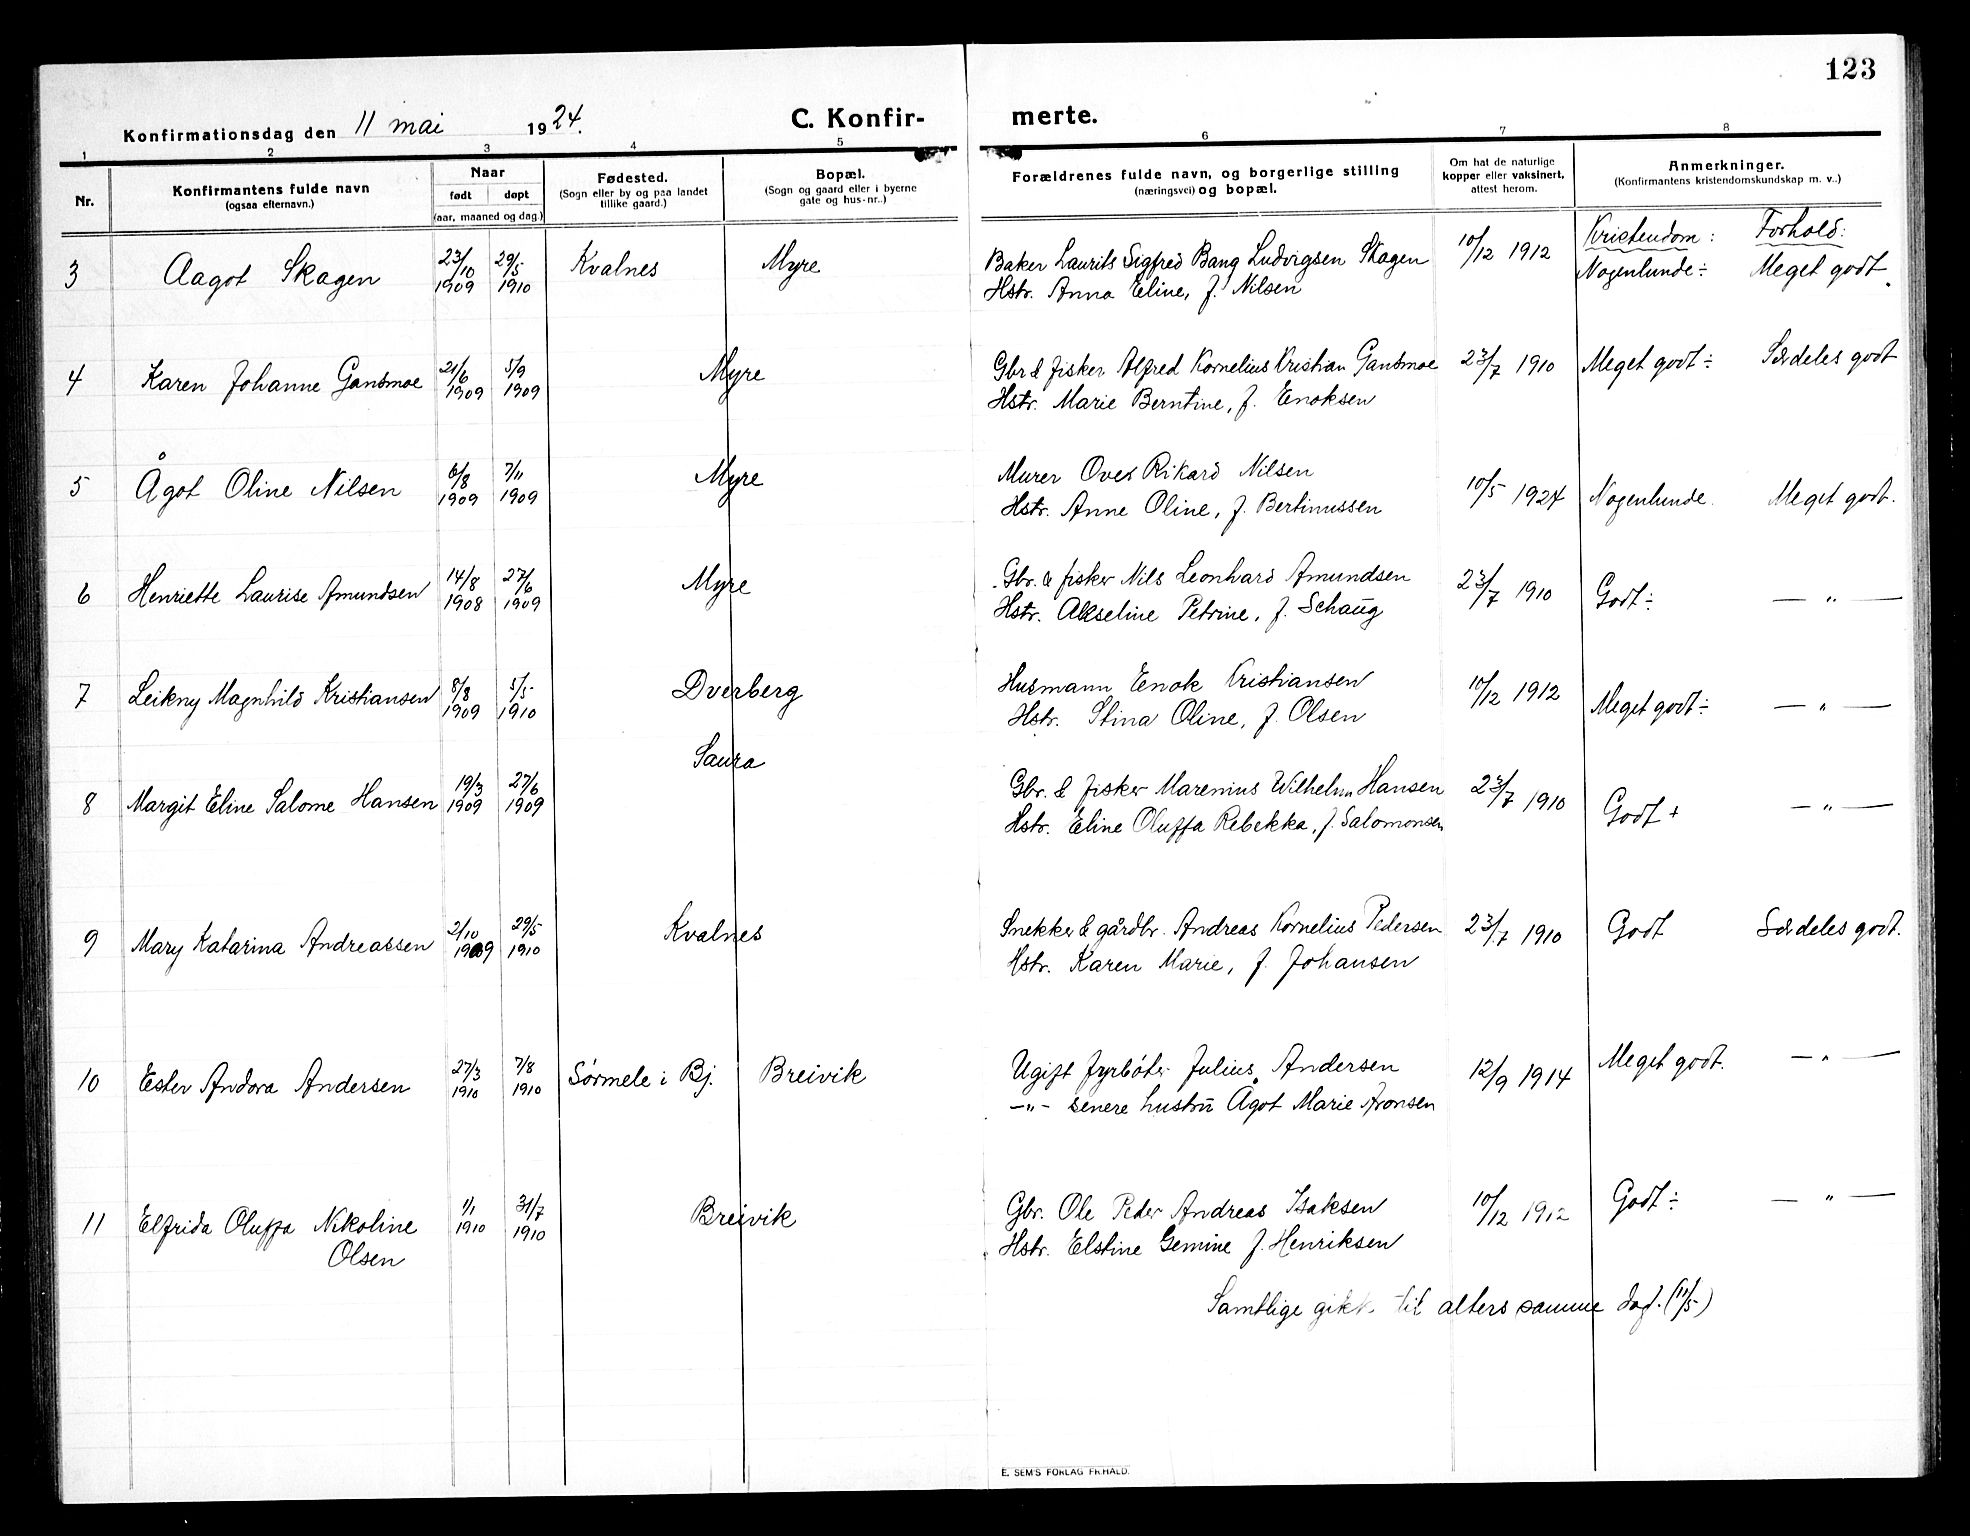 123
Konfirmationsdag den 11 mai 1924.
C. Konfir-
merte.
1 2 3 4 5 6 7 8
Nr.
Konfirmantens fulde navn
(ogsaa efternavn.)
Naar
født døpt
(aar, maaned og dag.)
Fødested.
(Sogn eller by og paa landet
tillike gaard.)
Bopæl.
(Sogn og gaard eller i byerne
gate og hus-nr..)
Forældrenes fulde navn, og borgerlige stilling
(næringsvei) og bopæl.
Om hat de naturlige
kopper eller vaksinert,
attest herom.
Anmerkninger.
(Konfirmantens kristendomskundskap m. v..)
Kristendom: Forhold:
3 Aagot Skagen 23/10 1909 29/5 1910 Kvalnes Myre Baker Laurits Sigfred Bang Ludvigsen Skagen 10/12 1912 Nogenlunde ÷ Meget godt.
Hstr. Anna Eline, f. Nilsen
4 Karen Johanne Gansmoe 21/6 1909 5/9 1909 Myre Gbr & fisker Alfred Kornelius Kristian Gansmoe 23/7 1910 Meget godt ÷ Særdeles godt
Hstr. Marie Berntine, f. Enoksen
5 Ågot Oline Nilsen 6/8 1909 7/11 1909 Myre Murer Oves Rikard Nilsen 10/5 1924 Nogenlunde. Meget godt.
Hstr. Anne Oline, f. Bertinussen
6 Henriette Laurise Amundsen 14/8 1908 27/6 1909 Myre Gbr. & fisker Nils Leonhard Amundsen 23/7 1910 Godt ÷ — " —
Hstr. Akseline Petrine, f. Schaug
7 Leikny Magnhild Kristiansen 8/8 1909 5/5 1910 Dverberg Husmann Enok Kristiansen 10/12 1912 Meget godt ÷ — " —
Hstr. Stina Oline, f. Olsen
8 Margit Eline Salome Hansen 19/3 1909 27/6 1909 Saura Gbr. & fisker Marenius Wilhelm Hansen 23/7 1910 Godt + — " —
Hstr. Eline Oluffa Rebekka, f. Salomonsen
9 Mary Katarina Andreassen 2/10 1909 29/5 1910 Kvalnes Snekker & gårdbr. Andreas Kornelius Pedersen 23/7 1910 Godt Særdeles godt.
Hstr. Karen Marie, f. Johansen
10 Ester Andora Andersen 27/3 1910 7/8 1910 Sørmele i Bj. Breivik Ugift fyrbøter Julius Andersen 12/9 1914 Meget godt. — " —
—"— senere hustru Ågot Marie Aronsen
11 Elfrida Oluffa Nikoline 1/1 1910 31/7 1910 Breivik Gbr. Ole Peder Andreas Isaksen 10/12 1912 Godt ÷ — " —
Olsen Hstr. Elstine Gemine f. Henriksen
Samtlige gikk til alters samme dag. (11/5)
E. SEM'S FORLAG FR.HALD.